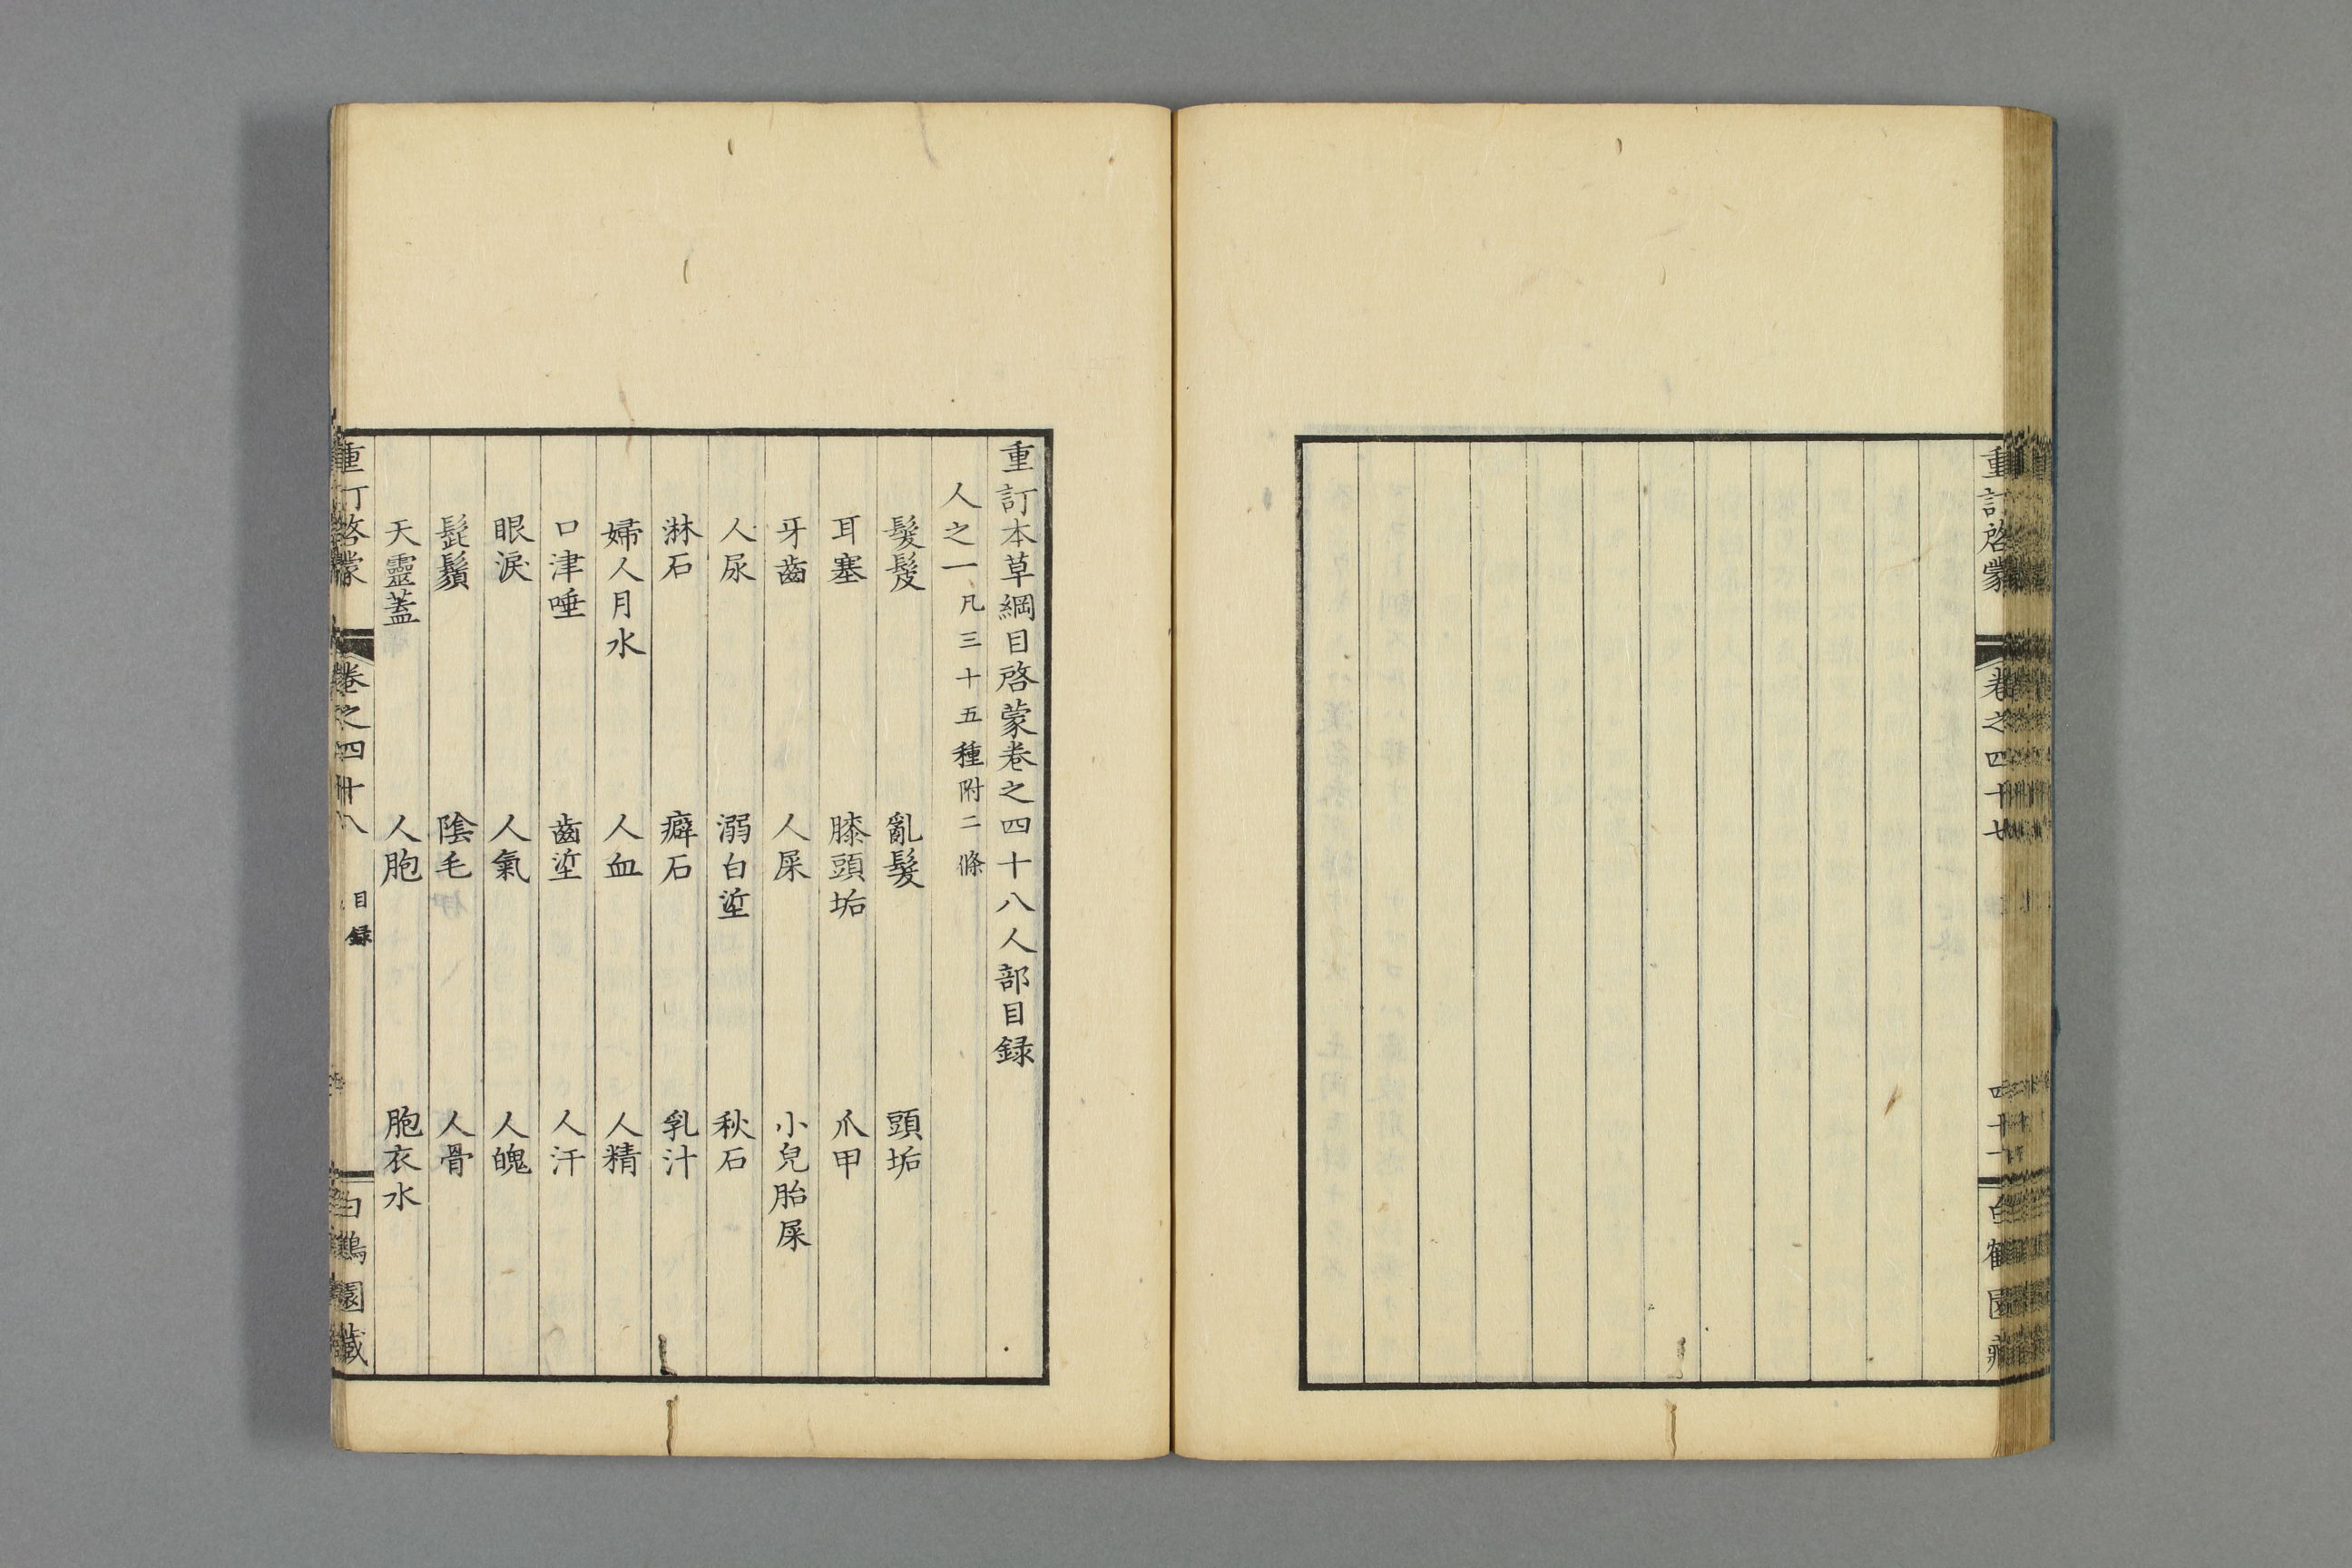 重訂啓蒙 卷之四十七 四十一 白鶴園藏
重訂本草綱目啓蒙卷之四十八人部目録
人之一 凡三十五種附二條
髮髲 亂髮 頭垢
耳塞 膝頭垢 爪甲
牙齒 人屎 小兒胎屎
人尿 溺白垽 秋石
淋石 癖石 乳汁
婦人月水 人血 人精
口津唾 齒垽 人汗
眼淚 人氣 人魄
髭鬚 陰毛 人骨
天靈蓋 人胞 胞衣水
重訂啓蒙 卷之四十八 目録 白鶴園藏